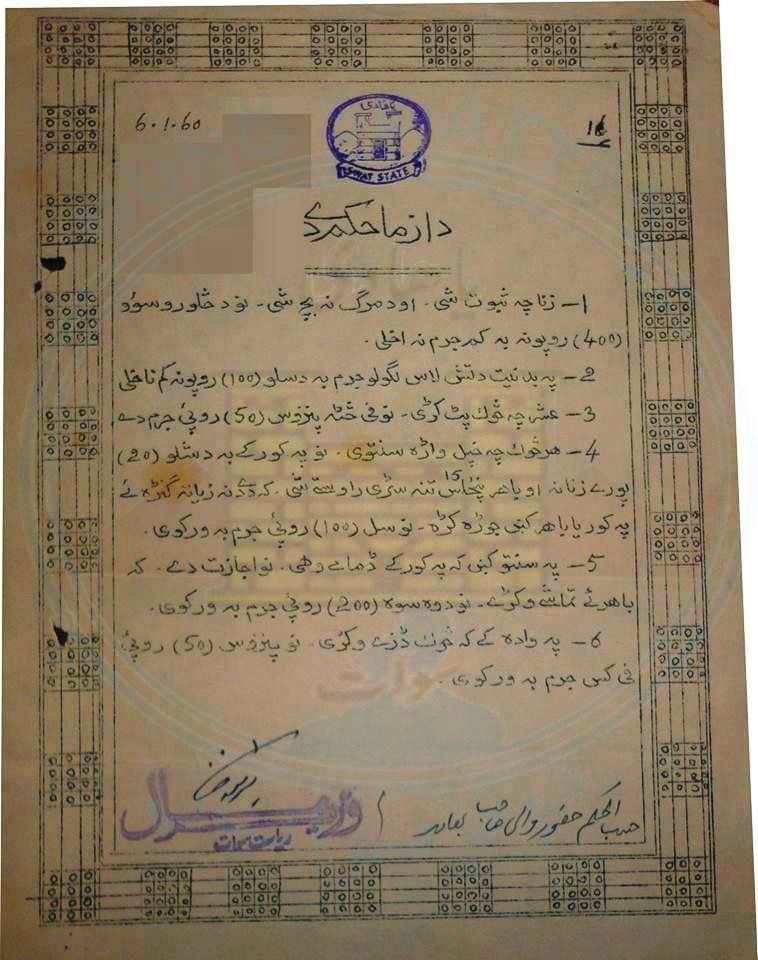 6.1.60
16
SWAT STATE
دا زما حکم دے
1- زنا چہ ثبوت شی. او د مرگ نہ بچ شی. نو د څلور وسوو
(400) روپونہ بہ کم جرم نہ اخلی.
2- پہ بد نیت د لاس لگولو جرم بہ د سلو (100) روپونہ کم نا خلی
3- عشر چہ څوک پٹ کڑی. نو فی پنځوس (50) روپئ جرم دے
4- هر څوک چہ خپل واڑہ سنتوی. نو پہ کور کے بہ د شلو (20)
پورے زنانہ او باهر پنځاس 15 تنہ سڑی راوستے شی. کہ دے نہ زیاتہ
پہ کور یا باهر کښ جوڑہ کڑہ- نو سل (100) روپئ جرم بہ ورکوی.
5- پہ سنتو کښ کہ پہ کور کے ڈمامے وهی. نو اجازت دے. کہ
باهر ئے تماشے وکڑے- نو دوہ سوہ (200) روپئ جرم بہ ورکوی.
6- پہ وادہ کے کہ څوک ڈزے وکڑی. نو پنځوس (50) روپئ
فی کس جرم بہ ورکوی.
حسب الحکم حضور والی صاحب بهادر
ریاست سوات
سوات